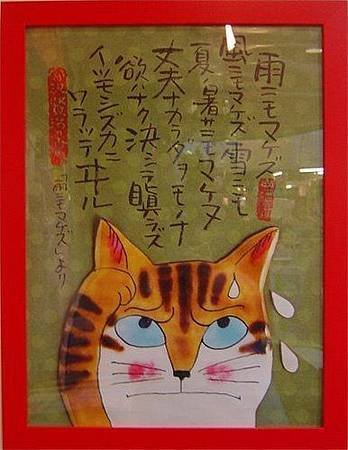 雨ニモマケズ
風ニモマケズ 雪ニモ
夏ノ暑サニモマケヌ
丈夫ナカラダヲモノナ
欲ハナク 決シテ瞋ラズ
イツモシズカニ
ワラッテヰル
宮沢賢治
「雨ニモマケズ」より